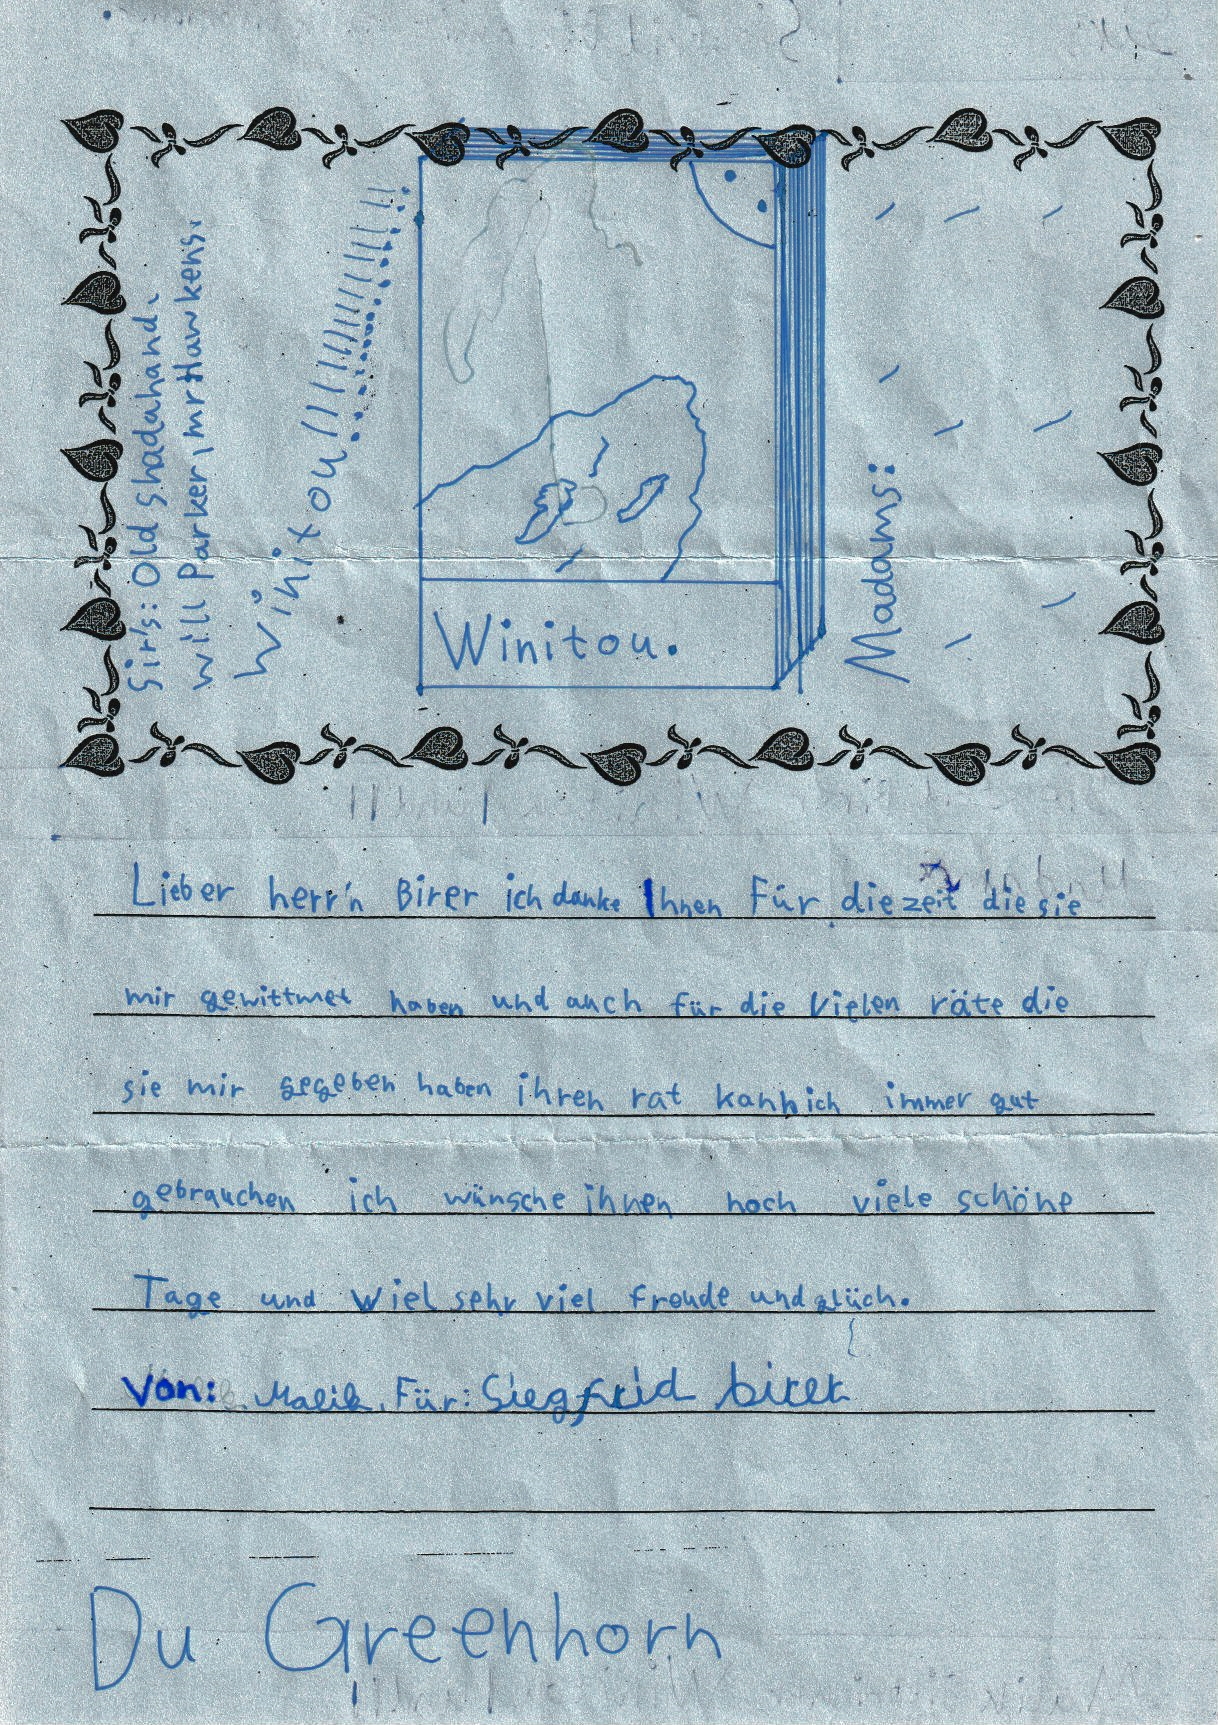 Sir's: Old Shadahand.
will Parker, mr Hawkens.
Winitou!!!!!!!!!!!!!!!!
Winitou.
Madams:
Lieber herr'n Birer ich danke Ihnen Für die zeit die sie
mir gewittmet haben und auch für die Vielen räte die
sie mir gegeben haben ihren rat kann ich immer gut
gebrauchen ich wünsche ihnen noch viele schöne
Tage und wiel sehr viel freude und glüch.
Von: Malik. Für: Siegfrid birer
Du Greenhorn